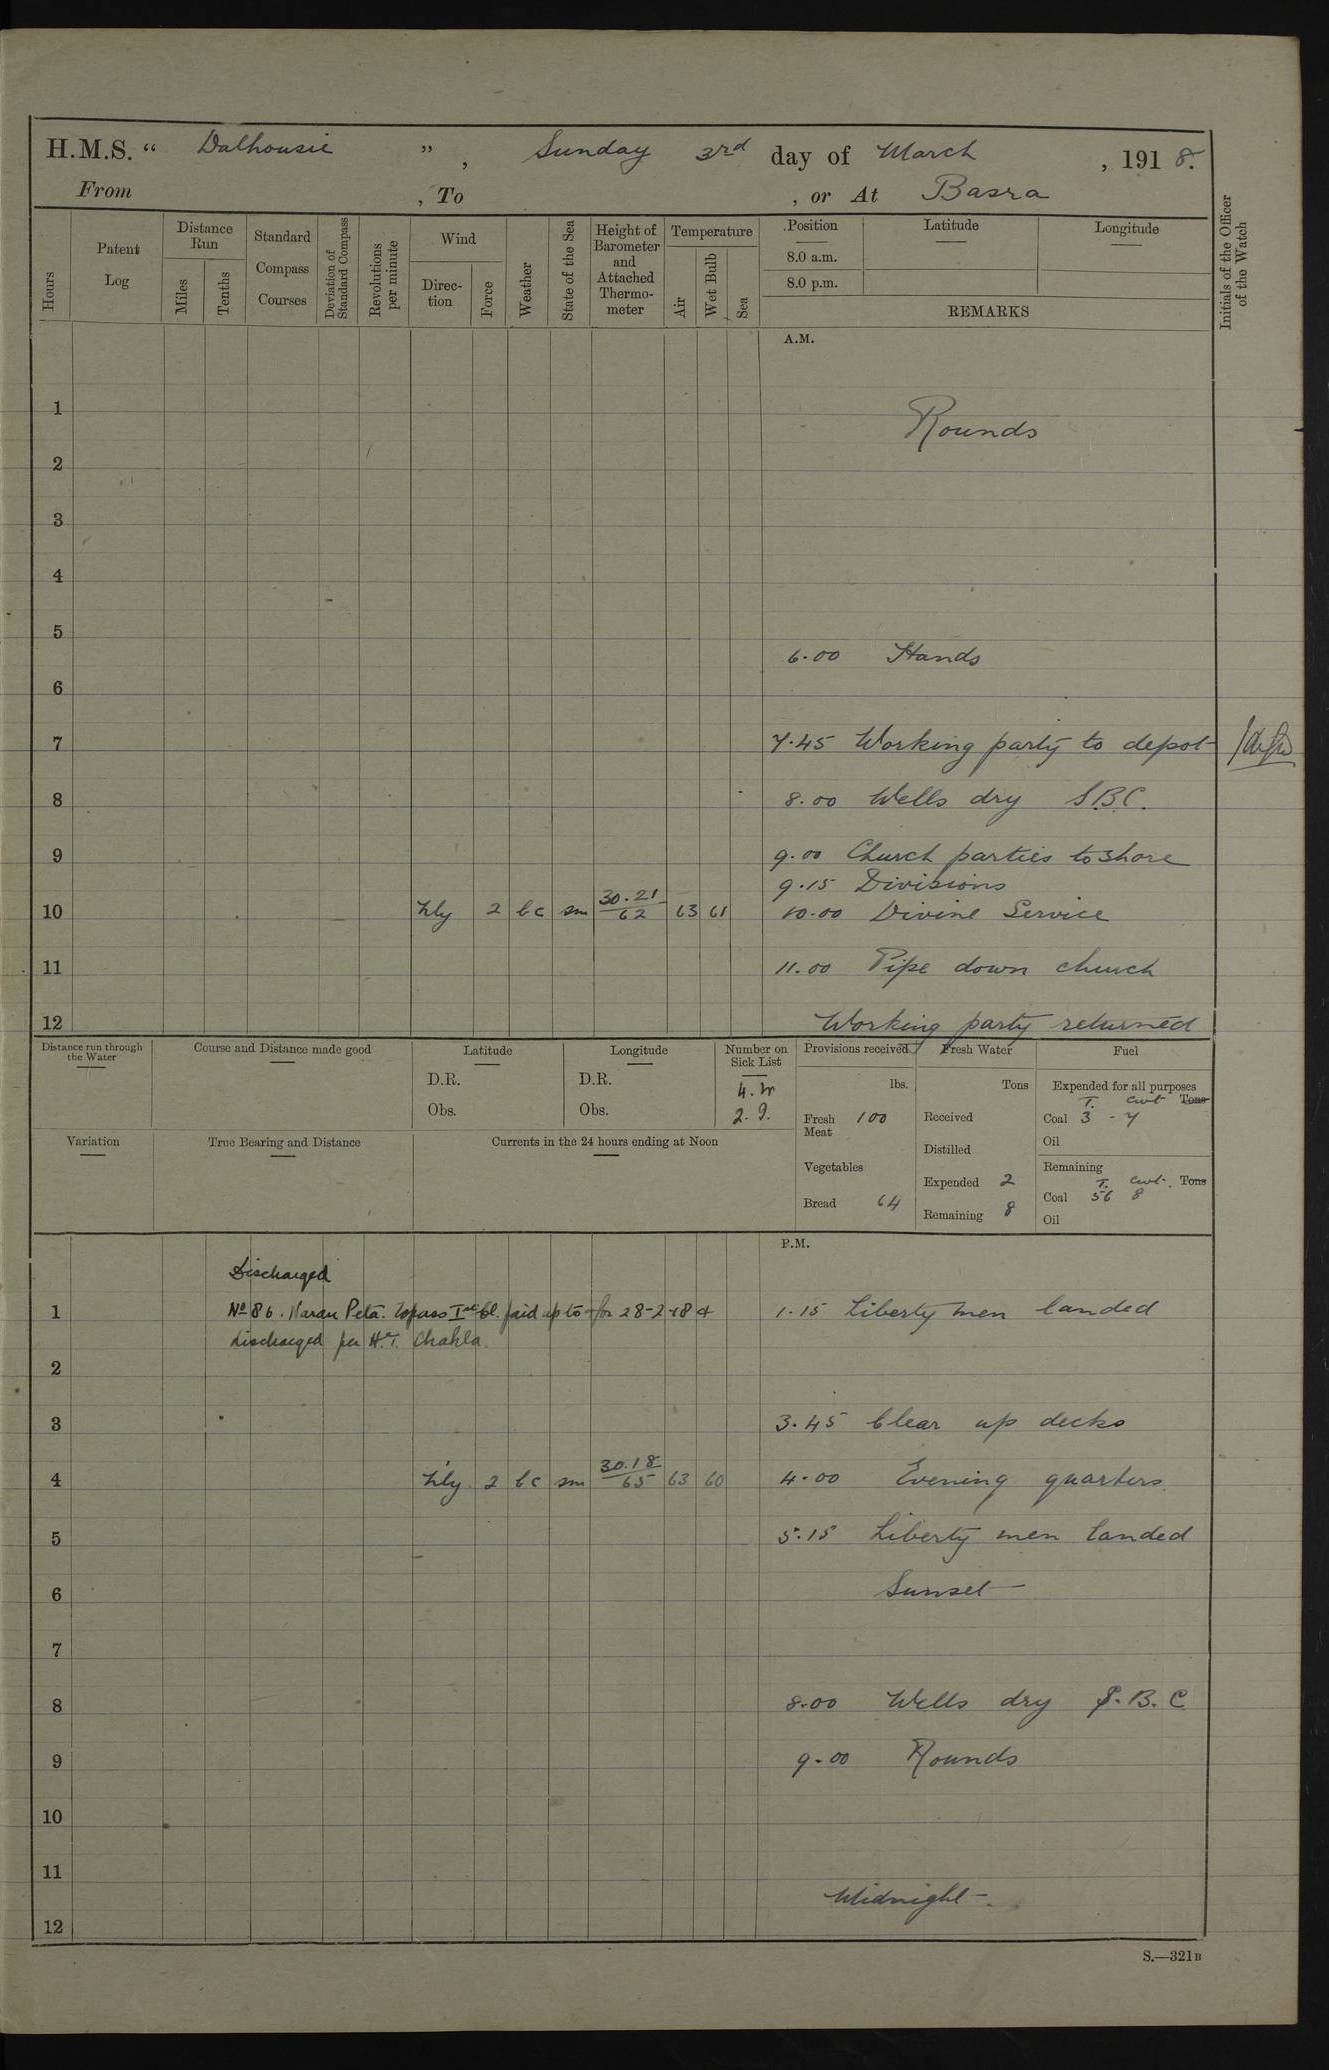 H.M.S. “ Dalhousie ” , Sunday 3rd day of March , 1918.
From , To , or At Basra
Hours
Patent Log
Distance Run
Miles
Tenths
Standard Compass Courses
Deviation of Standard Compass
Revolutions per minute
Wind
Direction
Force
Weather
State of the Sea
Height of Barometer and Attached Thermometer
Temperature
Air
Wet Bulb
Sea
Position
8.0 a.m.
8.0 p.m.
Latitude
Longitude
REMARKS
Initials of the Officer of the Watch
A.M.
1
Rounds
2
3
4
5
6.00 Hands
6
7 7.45 Working party to depot
8 8.00 Wells dry S.B.C.
9 9.00 Church parties to shore
9.15 Divisions
10 2 bc sm 30.21/62 63 61 10.00 Divine Service
11 11.00 Pipe down church
12 Working party returned
Distance run through the Water
Course and Distance made good
Latitude
D.R.
Obs.
Longitude
D.R.
Obs.
Number on Sick List
4.
2.
Provisions received
lbs.
Fresh Meat 100
Vegetables
Bread 64
Fresh Water
Tons
Received
Distilled
Expended 2
Remaining 8
Fuel
Expended for all purposes
T. cwt Tons
Coal 3 - 7
Oil
Remaining
T. cwt. Tons
Coal 56 8
Oil
Variation
True Bearing and Distance
Currents in the 24 hours ending at Noon
P.M.
Discharged
1 No 86. Naran Peta. Topass Ist cl. paid up to & for 28-2-18 & 1.15 Liberty men landed
discharged per H.T. Chakla.
2
3 3.45 Clear up decks
4 2 bc sm 30.18/65 63 60 4.00 Evening quarters.
5 5.15 Liberty men landed
6 Sunset
7
8 8.00 Wells dry S.B.C
9 9.00 Rounds
10
11
Midnight.
12
S.—321B